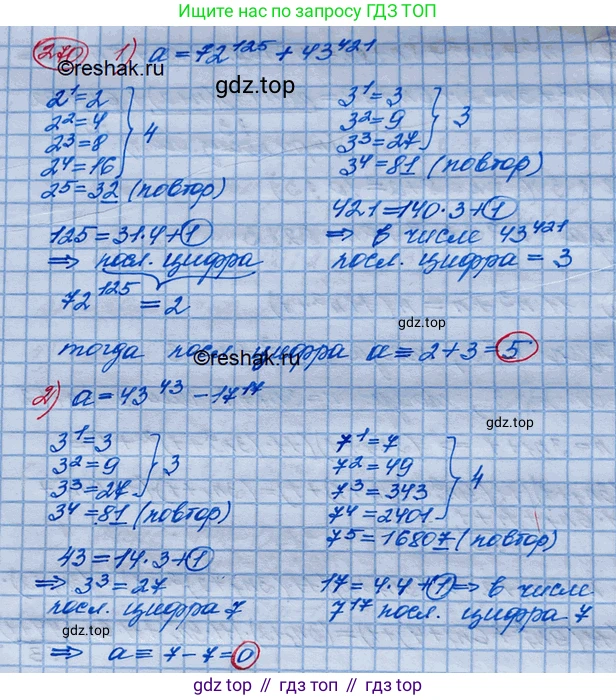 Найти ответ по запросу ГДЗ ТОП
270 1) a = 72^125 + 43^421
©reshak.ru
gdz.top
2^1=2
2^2=4
2^3=8
2^4=16
2^5=32 (повтор)
4
3^1=3
3^2=9
3^3=27
3^4=81 (повтор)
3
125=31·4+1
⇒ посл. цифра
72^125=2
421=140·3+1
⇒ в числе 43^421
посл. цифра = 3
gdz.top
тогда посл цифра a = 2+3=5
©reshak.ru
2) a=43^43 - 17^17
3^1=3
3^2=9
3^3=27
3^4=81 (повтор)
3
gdz.top
7^1=7
7^2=49
7^3=343
7^4=2401
7^5=16807 (повтор)
4
43=14·3+1
⇒ 3^3=27
посл. цифра 7
17=4·4+1 ⇒ в числе
7^17 посл. цифра 7
gdz.top
⇒ a = 7-7=0
gdz.top // гдз.топ // gdz.top // гдз.топ